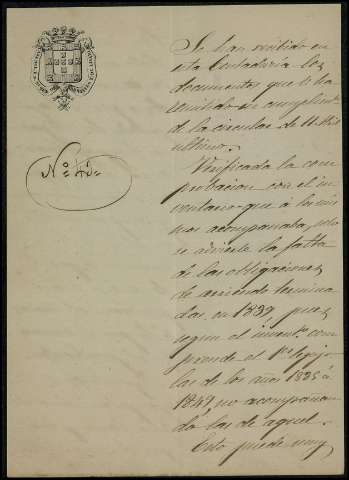 Se han recibido en
esta Contaduría los
documentos que V. ha
remitido en cumplimto.
de la circular de 11 Abril
último.
Nº
Verificada la com
probacion con el in
ventario que á los mis
mos acompañaba, solo
se advierte la falta
de las obligaciones
de arriendo termina
das en 1839, pues
segun el inventº. com
prende el 1er. legajo
las de los años 1835 á
1849, no acompañan
do las de aquel.
Esto puede muy